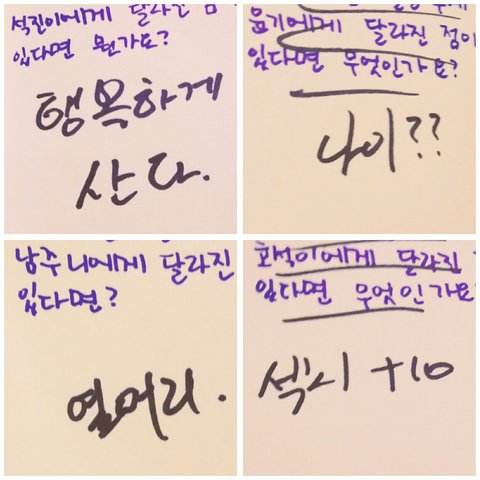 석진이에게 달라진 점
있다면 뭔가요?
행복하게
산다.
윤기에게 달라진 점이
있다면 무엇인가요?
나이??
남주니에게 달라진
있다면?
호석이에게 달라진
있다면 무엇인가요
섹시 +10